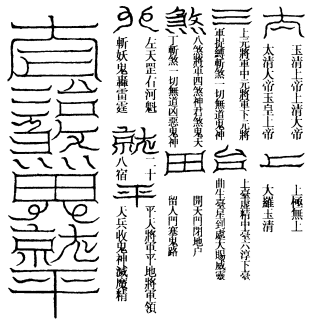 玉清上帝上清大帝
太清大帝玉皇上帝
三
上元將軍中元將軍下元將
軍捉縛斬煞一切無道鬼神
煞
八煞將軍四煞神君煞鬼天
丁斬煞一切無道凶惡鬼神
左天罡右河魁
斬妖鬼轟雷霆
一
上極無上
大羅玉清
台
上臺虛精中臺六淳下臺
曲生臺星到處大賜威靈
田
開天門閉地戶
留人門塞鬼路
就
二十
八宿
平
平天將軍平地將軍領
天兵收鬼神滅魔精